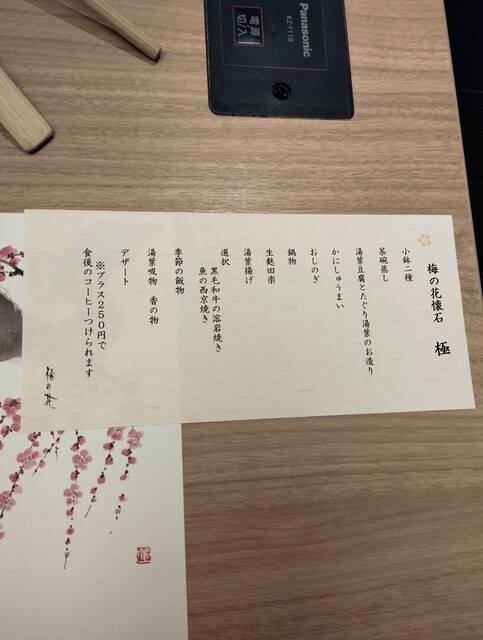 Panasonic
KZ-F11B
電源
切/入
梅の花懐石 極
小鉢二種
茶碗蒸し
湯葉豆腐とたぐり湯葉のお造り
かにしゅうまい
おしのぎ
鍋物
生麩田楽
湯葉揚げ
選択
黒毛和牛の溶岩焼き
魚の西京焼き
季節の飯物
湯葉吸物 香の物
デザート
※プラス250円で
食後のコーヒーつけられます
梅の花